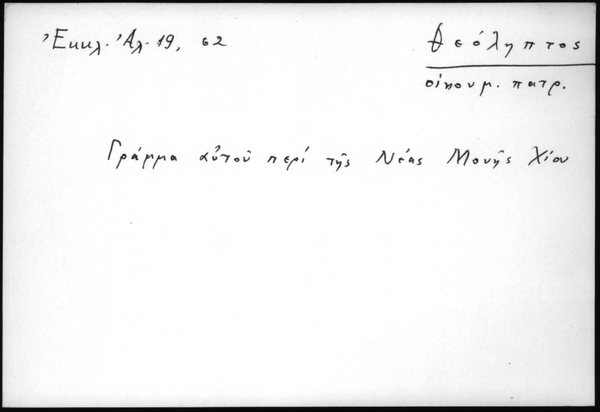 Ἐκκλ. Ἀλ. 19, 62
Θεόληπτος
οἰκουμ. πατρ.
Γράμμα αὐτοῦ περί τῆς Νέας Μονῆς Χίου